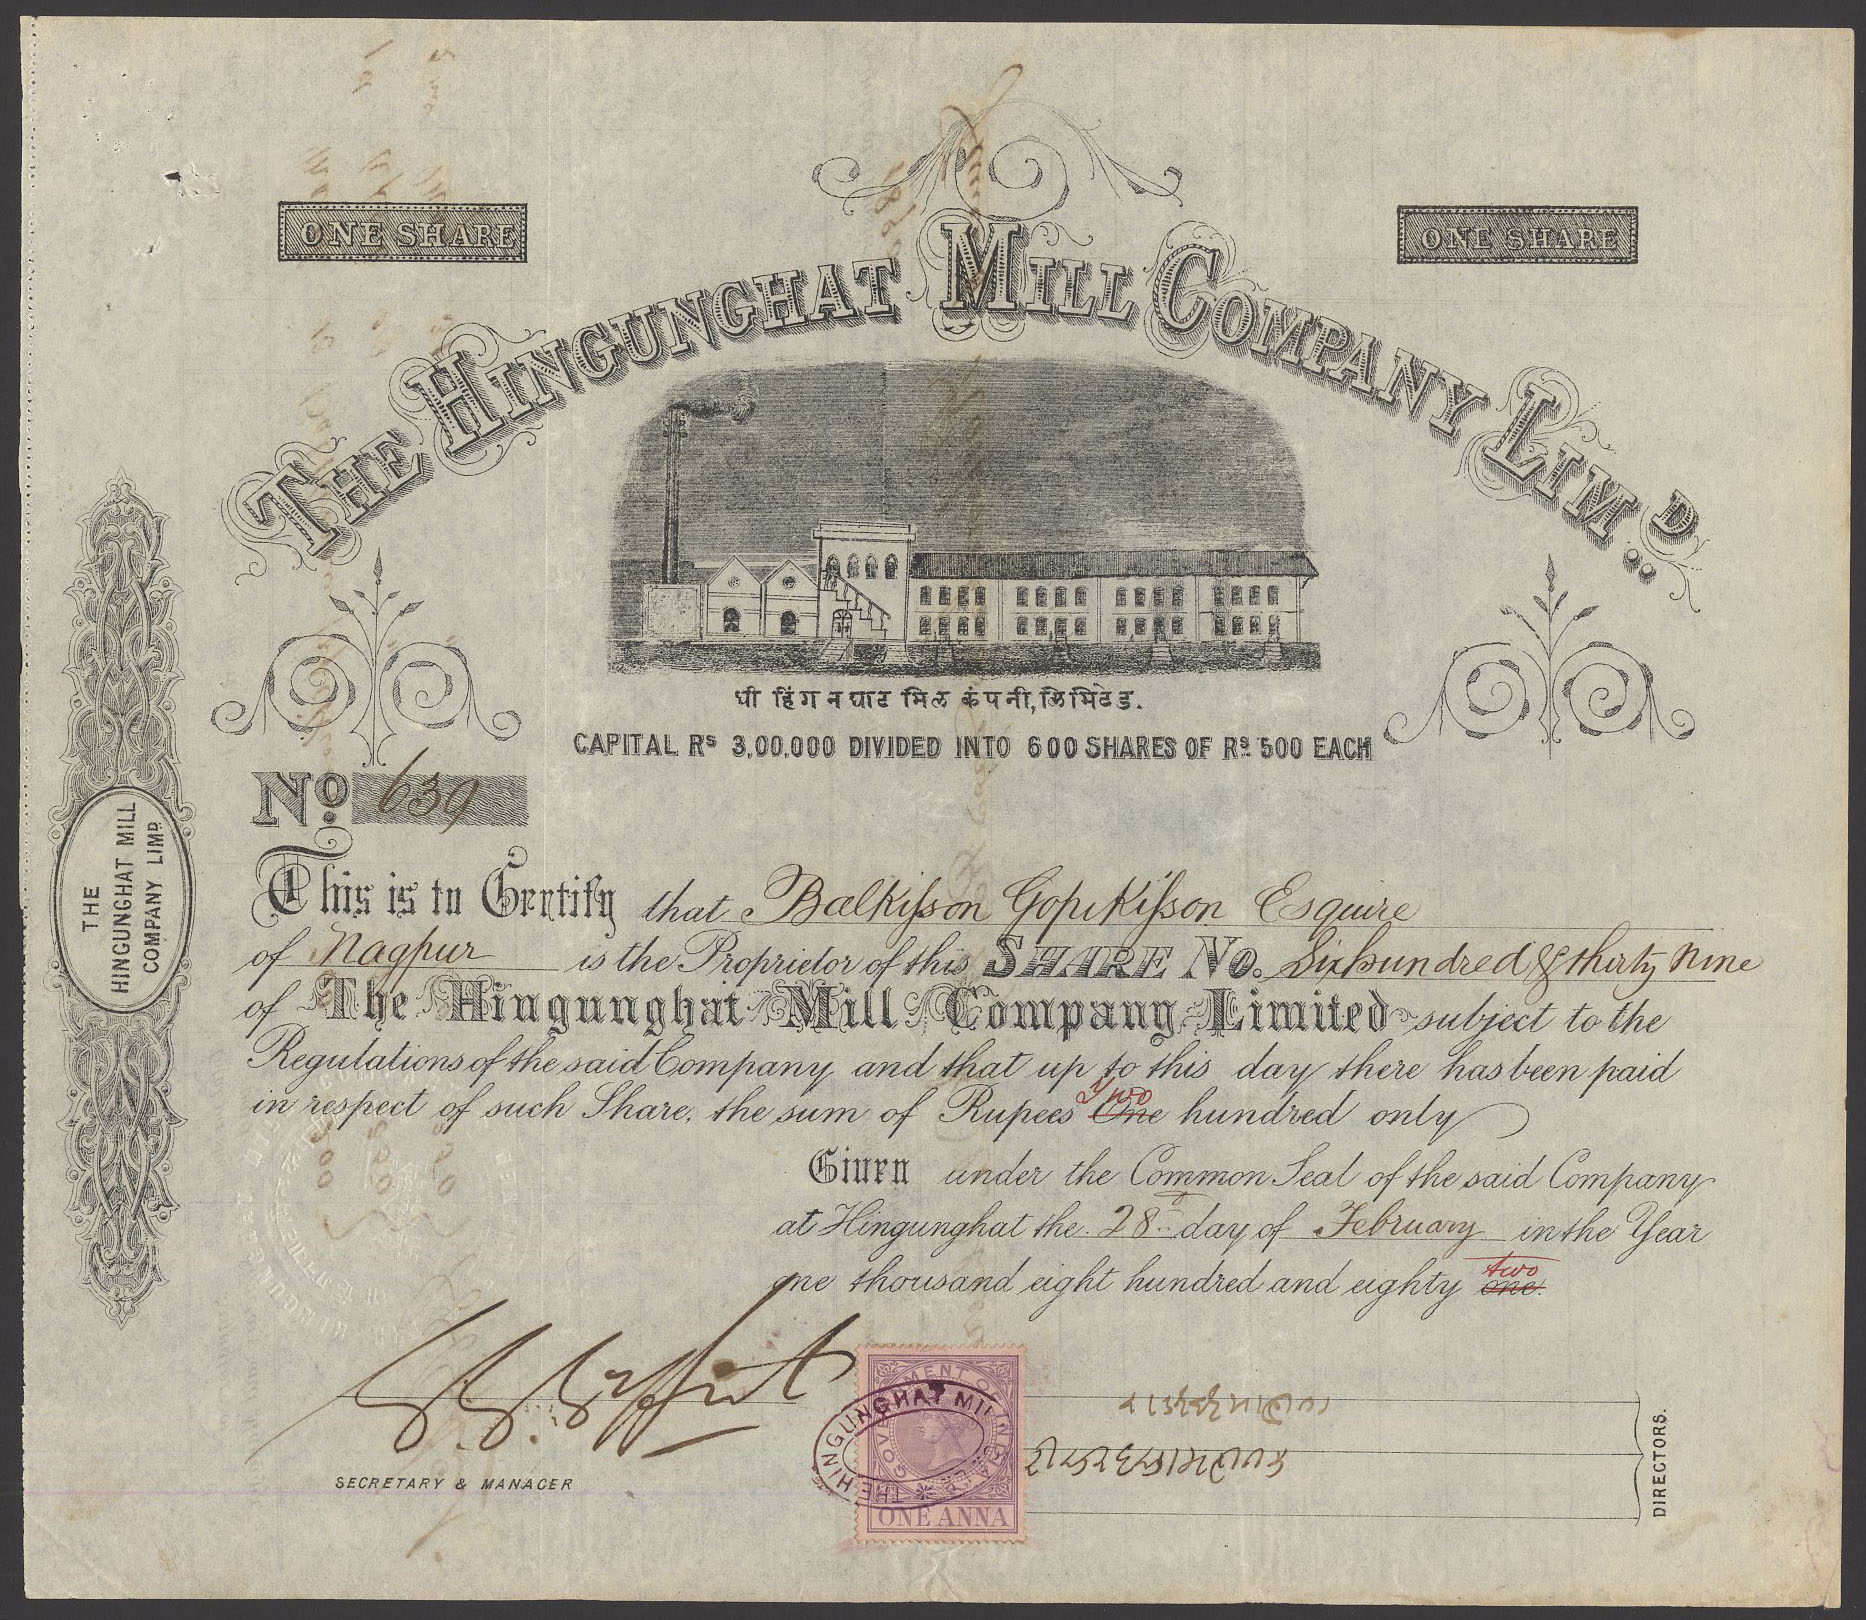 ONE SHARE
ONE SHARE
THE HINGUNGHAT MILL COMPANY LIM.D
धी हिंगनघाट मिल कंपनी, लिमिटेड.
CAPITAL Rs 3,00,000 DIVIDED INTO 600 SHARES OF Rs 500 EACH
No. 639
THE
HINGUNGHAT MILL
COMPANY LIMD.
This is to Certify that Balkisson Gopikisson Esquire
of Nagpur is the Proprietor of this SHARE No. Six hundred & thirty nine
of The Hingunghat Mill Company Limited subject to the
Regulations of the said Company and that up to this day there has been paid
in respect of such Share, the sum of Rupees One Two hundred only
Given under the Common Seal of the said Company
at Hingunghat the 28 day of February in the Year
one thousand eight hundred and eighty one two
SECRETARY & MANAGER
GOVERNMENT OF INDIA
THE HINGUNGHAT MILL
ONE ANNA
DIRECTORS.